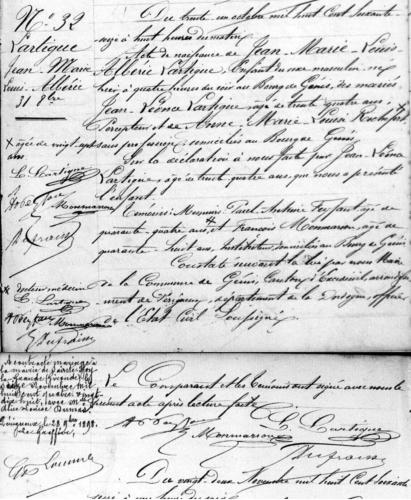 N° 32
Lartigue
Jean Marie
Louis Albéric
31 8bre
X âgée de vingt sept
ans
L. Lartigue
Monmarson
Dufraisse
Du trente un octobre mil huit Cent soixante
à huit heures du matin
Acte de naissance de Jean Marie Louis
Albéric Lartigue, Enfant du sexe masculin né
hier à quatre heures du soir au Bourg de Génis, des mariés
Jean Léonce Lartigue âgé de trente quatre ans,
Percepteur et de Anne Marie Louisa Rochefort
sans profession domiciliés au Bourg de Génis
Sur la déclaration à nous faite par Jean Léonce
Lartigue, âgé de trente quatre ans que nous a présenté
l'enfant.
Témoins: Messieurs Paul Antoine âgé de
quarante quatre ans et François Monmarson, âgé de
quarante huit ans, Instituteur domiciliés au Bourg de Génis
Constaté suivant la loi par nous Maire
X
médecin
L. Lartigue
Monmarson
Dufraisse
de la Commune de Génis, Canton d'Excideuil, arrondisse
ment de Périgueux, département de la Dordogne, officier
de l'Etat Civil Soussigné
A contracté mariage à
la mairie de
le
Novembre mil
huit cent quatre vingt
dix huit, avec
Louise
Périgueux, le 28 9bre 1898
Le Greffier,
Le Comparant et les témoins ont signé avec nous le
présent acte après lecture faite
L. Lartigue
Monmarson
Dufraisse
Du vingt deux Novembre mil huit Cent soixante
à une heure du